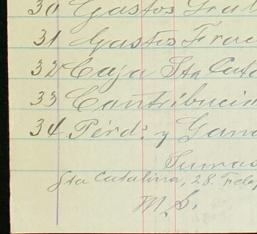 30 Gastos Gral
31 Gastos Frac
32 Caja Sta Cata
33 Contribucion
34 Pérd.s y Gana
Sumas
Sta Catalina, 28 Feb
M. S.